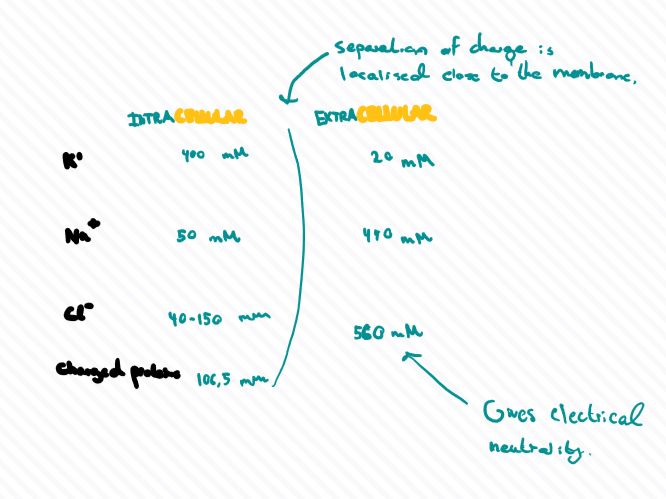 Separation of charge is
localised close to the membrane.
INTRACELLULAR EXTRACELLULAR
K+ 400 mM 20 mM
Na+ 50 mM 440 mM
Cl- 40-150 mm 560 mM
Charged proteins 106,5 mm
Gives electrical
neutrality.